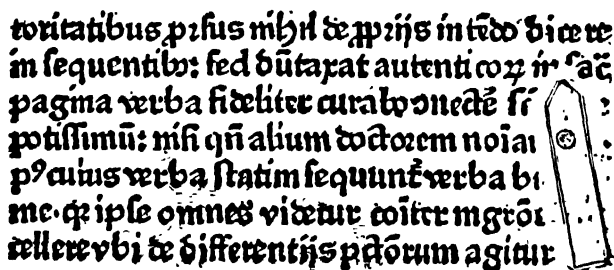 toritatibus prſus nihil de ꝓprijs intēdo dicere
in ſequentibꝰ: ſed dūtaxat autenticoꝝ in ſac̄
pagina verba fideliter curabo ɔnectē
potiſſimū: niſi qn̄ alium doctorem
pꝰ cuius verba ſtatim ſequunt᷑ verba
me. ꝙ ipſe omnes videtur coīter
cellere vbi de differentijs pctōrum agitur